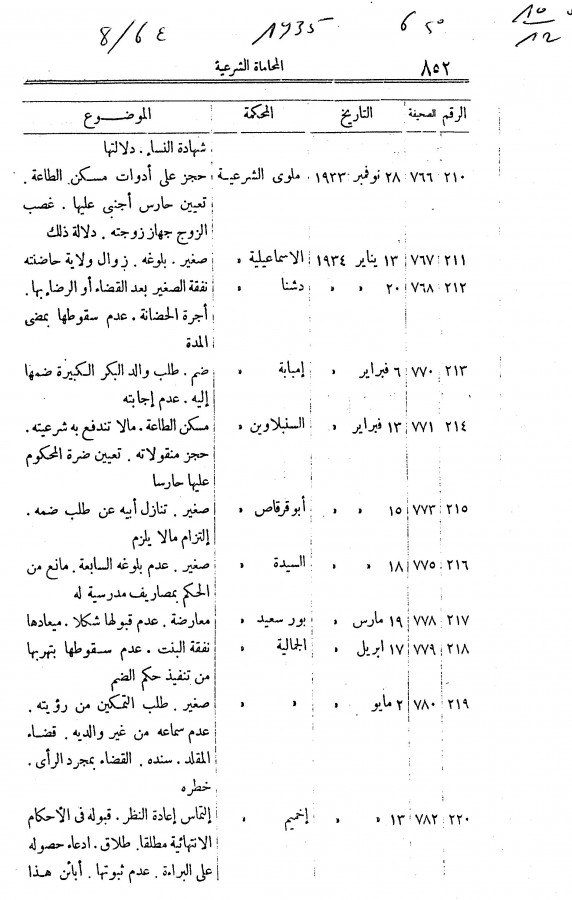 8/64 1935 6 50 10/12
٨٥٢ المحاماة الشرعية
الرقم الصحيفة التاريخ المحكمة الموضــوع
شهادة النساء . دلالتها
٢١٠ ٧٦٦ ٢٨ نوفمبر ١٩٣٣ ملوى الشرعية حجز على أدوات مسكن الطاعة .
تعيين حارس أجنبى عليها . غصب
الزوج جهاز زوجته . دلالة ذلك
٢١١ ٧٦٧ ١٣ يناير ١٩٣٤ الاسماعيلية » صغير . بلوغه . زوال ولاية حاضنته
٢١٢ ٧٦٨ ٢٠ » » دشنا » نفقة الصغير بعد القضاء أو الرضا بها .
أجرة الحضانة . عدم سقوطها بمضى
المدة
٢١٣ ٧٧٠ ٦ فبراير » إمبابة » ضم . طلب والد البكر الكبيرة ضمها
إليه . عدم إجابته
٢١٤ ٧٧١ ١٣ فبراير » السنبلاوين » مسكن الطاعة . مالا تندفع به شرعيته .
حجز منقولاته . تعيين ضرة المحكوم
عليها حارسا
٢١٥ ٧٧٣ ١٥ » » أبوقرقاص » صغير . تنازل أبيه عن طلب ضمه .
إلتزام مالا يلزم
٢١٦ ٧٧٥ ١٨ » » السيدة » صغير . عدم بلوغه السابعة . مانع من
الحكم بمصاريف مدرسية له
٢١٧ ٧٧٨ ١٩ مارس » بور سعيد » معارضة . عدم قبولها شكلا . ميعادها
٢١٨ ٧٧٩ ١٧ ابريل » الجمالية » نفقة البنت . عدم سقوطها بتهربها
من تنفيذ حكم الضم
٢١٩ ٧٨٠ ٢ مايو » » » صغير . طلب التمكين من رؤيته .
عدم سماعه من غير والديه . قضاء
المقلد . سنده . القضاء بمجرد الرأى .
خطره
٢٢٠ ٧٨٢ ١٣ » » إخميم » إلتماس إعادة النظر . قبوله فى الأحكام
الانتهائية مطلقا . طلاق . ادعاء حصوله
على البراءة . عدم ثبوتها . أبائن هذا